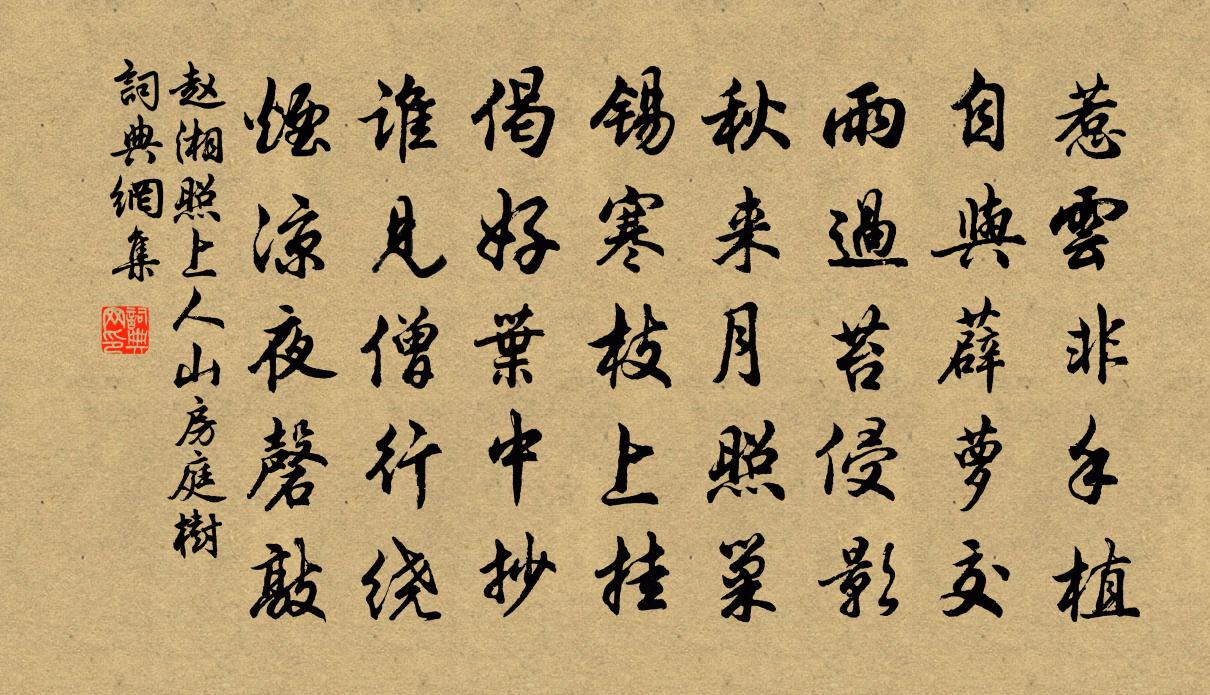 惹雲非手植
自與薜蘿交
雨過苔侵影
秋来月照巢
錫寒枝上挂
偈好葉中抄
谁見僧行绕
煙涼夜磬敲
赵湘照上人山房庭樹
詞典網集
詞典
网印